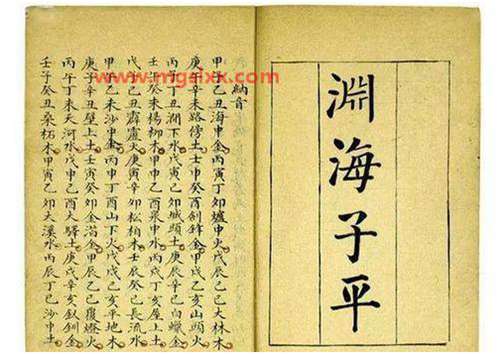 淵海子平
納音
甲子乙丑海中金丙寅丁卯爐中火戊辰己巳大林木
庚午辛未路傍土壬申癸酉劍鋒金甲戌乙亥山頭火
丙子丁丑澗下水戊寅己卯城頭土庚辰辛巳白蠟金
壬午癸未楊柳木甲申乙酉泉中水丙戌丁亥屋上土
戊子己丑霹靂火庚寅辛卯松柏木壬辰癸巳長流水
甲午乙未沙中金丙申丁酉山下火戊戌己亥平地木
庚子辛丑壁上土壬寅癸卯金金甲辰乙巳覆燈火
丙午丁未天河水戊申己酉大驛土庚戌辛亥釵釧金
壬子癸丑桑柘木甲寅乙卯大溪水丙辰丁巳沙中土
www.mgslxx.com